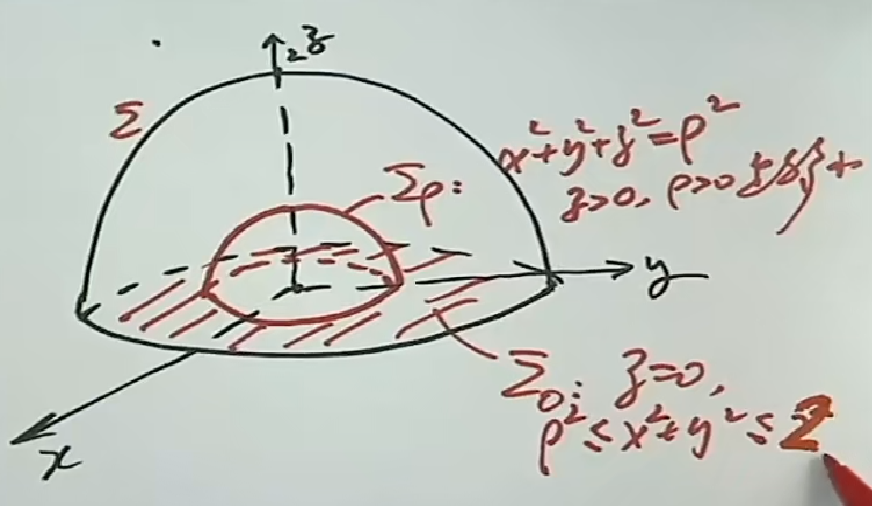 2 z
Σ
Σρ: x²+y²+z²=ρ²
z>0, ρ>0
y
Σ₀: z=0,
ρ²≤x²+y²≤2
x